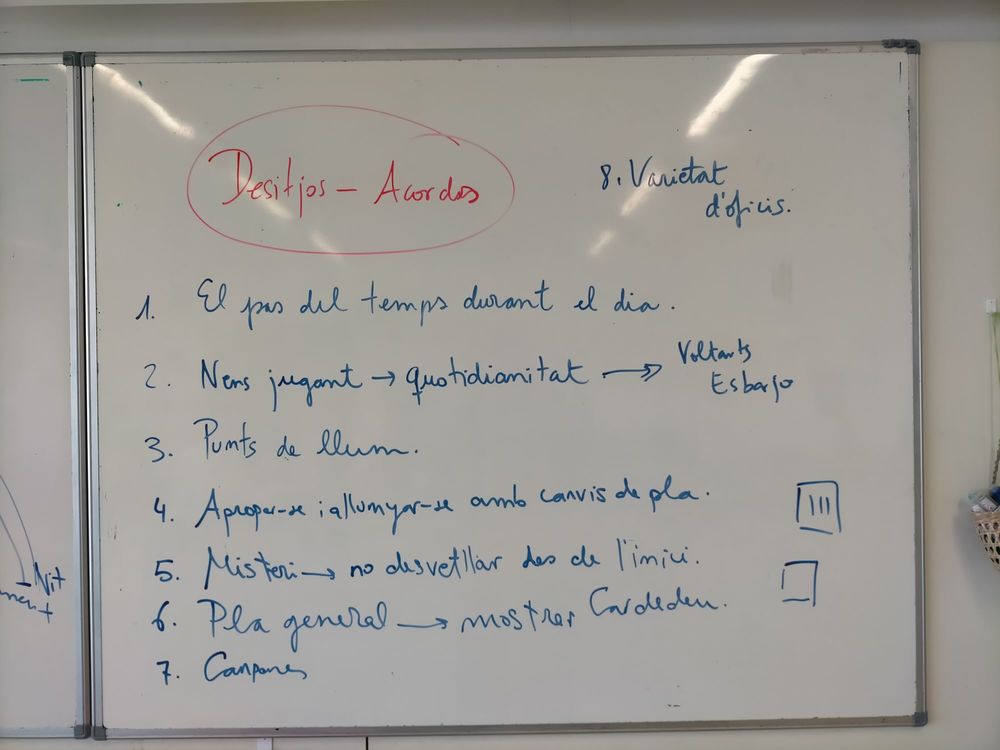 Desitjos - Acordos
8. Varietat
d'oficis.
1. El pas del temps durant el dia.
2. Nens jugant → quotidianitat → Voltants
Esbarjo
3. Punts de llum.
4. Apropar-se i allunyar-se amb canvis de pla.
5. Misteri → no desvetllar des de l'inici.
6. Pla general → mostrar Cardedeu.
7. Campanes
Nit